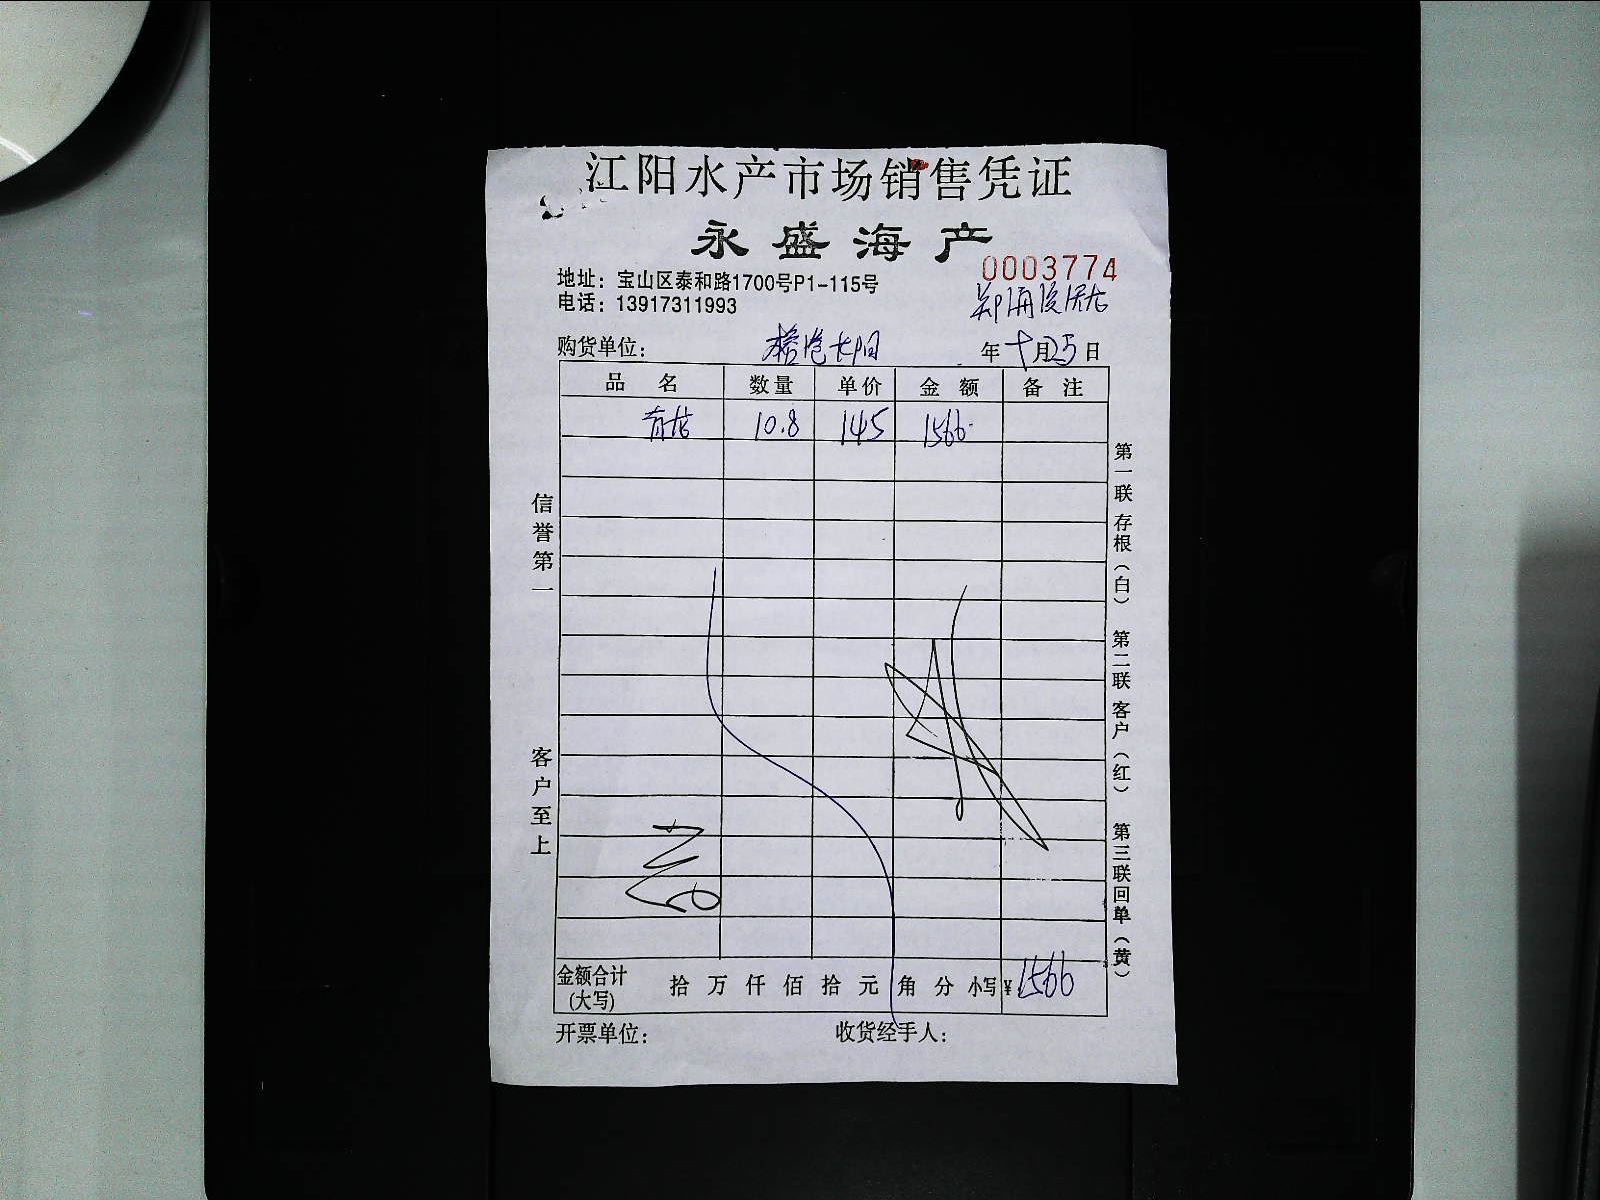 江阳水产市场销售凭证
永盛海产
0003774
地址：宝山区泰和路1700号P1-115号
电话：13917311993
购货单位： 年十月25日
品名 数量 单价 金额 备注
10.8 145 1566
信誉第一
客户至上
第一联存根（白）
第二联客户（红）
第三联回单（黄）
金额合计(大写) 拾万仟佰拾元角分 小写¥1566
开票单位： 收货经手人：